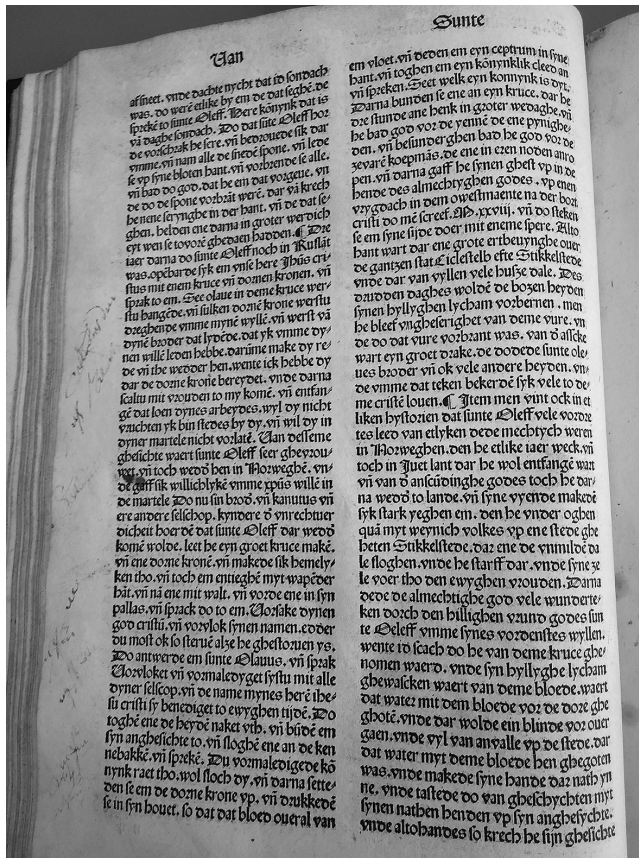 Van
afsneet. vnde dachte nycht dat id sondach
was. do werē etlike by em de dat seghē. de
sprekē to sunte Oleff. Here kōnynk dat is
vā daghe sondach. Do dat sūte Oleff hor
de vorschrak he sere. vn̄ bedrouede sik dar
vmme. vn̄ nam alle de snedē spone. vn̄ lede
se vp syne bloten hant. vn̄ vorbrende se alle.
vn̄ bad do god. dat he em dat vorgeue. vn̄
de do de spone vorbrāt werē. dar vā krech
he nene serynghe in der hant. vn̄ de dat se-
ghen. helden ene darna in groter werdich
eyt wen se tovorē ghedaen hadden. ¶ Dre
iaer darna do sunte Oleff noch in Ruslāt
was. opēbarde syk em vnse here Jhūs cri-
stus mit enem kruce vn̄ dornen kronen. vn̄
sprak to em. See olaue in deme kruce wer-
stu hangēde. vn̄ sulken dornē krone werstu
dreghende vmme mynē wyllē. vn̄ werst vā
dynē broder dat lydēde. dat yk vmme dy-
nen willē leden hebbe. darūme make dy re-
de vn̄ the wedder hen. wente ick hebbe dy
dar de dorne krone bereydet. vnde darna
scaltu mit vrouden to my komē. vn̄ entfan-
gē dat loen dynes arbeydes. wyl dy nicht
vruchten yk bin stedes by dy. vn̄ wil dy in
dyner martele nicht vorlatē. Van desseme
ghesichte waert sunte Oleff seer ghevrou-
wet. vn̄ toch wedd̄ hen in Norweghē. vn-
de gaff sik willichlykē vmme xp̄us willē in
de martele Do nu sin brod̄. vn̄ kanutus vn̄
ere andere selschop. kyndere d̄ vnrechtuer
dicheit hoerdē dat sunte Oleff dar wedd̄
komē wolde. leet he eyn groet kruce makē.
vn̄ ene dorne kronē. vn̄ makede sik hemely-
ken tho. vn̄ toch em entieghē myt wapēder
hāt. vn̄ nā ene mit walt. vn̄ vorde ene in syn
pallas. vn̄ sprack do to em. Vorsake dynen
god cristū. vn̄ vorvlok synen namen. edder
du most ok so steruē alze he ghestoruen ys.
Do antwerde em sunte Olauus. vn̄ sprak
Vorvloket vn̄ vormaledyget systu mit alle
dyner selscop. vn̄ de name mynes herē ihe-
su cristi sy benediget to ewyghen tijdē. Do
toghē ene de heydē naket vth. vn̄ būdē em
syn anghesichte to. vn̄ sloghē ene an de ken
nebakkē. vn̄ sprekē. Du vormaledigede kō
nynk raet tho. wol sloch dy. vn̄ darna sette-
den se em de dorne krone vp. vn̄ drukkedē
se in syn houet. so dat dat bloed oueral van
Sunte
em vloet. vn̄ deden em eyn ceptrum in syne
hant. vn̄ toghen em eyn kōnynklik cleed an
vn̄ spreken. Seet welk eyn konnynk is dyt.
Darna bunden se ene an eyn kruce. dar he
dre stunde ane henk in groter wedaghe. vn̄
he bad god vor de yennē de ene pynighe-
den. vn̄ besunderghen bad he god vor de
zevarē koepmās. de ene in eren noden anro
pen. vn̄ darna gaff he synen ghest vp in de
hende des almechtyghen godes. vp enen
vrygdach in dem owestmaente na der bort
cristi do mē screef. M. xxviij. vn̄ do steken
se em syne sijde doer mit eneme spere. Alto
hant wart dar ene grote ertbeuynghe ouer
de gantzen stat Ciclestelb efte Stikkelstede
vnde dar van vyllen vele husze dale. Des
drudden daghes woldē de bozen heyden
synen hyllyghen lycham vorbernen. men
he bleef vngheserighet van deme vure. vn
de do dat vure vorbrant was. van d̄ asscke
wart eyn groet drake. de dodede sunte ole-
ues broder vn̄ ok vele andere heyden. vn-
de vmme dat teken bekerdē syk vele to de-
me cristē louen. ¶ Item men vint ock in et
liken hystorien dat sunte Oleff vele vordre
tes leed van etlyken dede mechtych weren
in Norweghen. den he etlike iaer weck. vn̄
toch in Juet lant dar he wol entfangē wart
vn̄ van d̄ anscūdinghe godes toch he dar-
na wedd̄ to lande. vn̄ syne vyende makedē
syk stark yeghen em. den he vnder oghen
quā myt weynich volkes vp ene stede ghe
heten Stikkelstede. daz ene de vnmildē da
le sloghen. vnde he starff dar. vnde syne ze
le voer tho den ewyghen vrouden. Darna
dede de almechtighe god vele wunderte-
ken dorch den hillighen vrund godes sun
te Oeleff vmme synes vordenstes wyllen.
wente id scach do he van deme kruce ghe-
nomen waerd. vnde syn hyllyghe lycham
ghewascken waert van deme bloede. waert
dat water mit dem bloede vor de dore ghe
ghotē. vnde dar wolde ein blinde vor ouer
gaen. vnde vyl van anvalle vp de stede. dar
dat water myt deme bloede hen ghegoten
was. vnde makede syne hande dar nath yn
ne. vnde tastede do van gheschychten myt
synen nathen henden vp syn anghesychte.
vnde altohandes so krech he sijn ghesichte